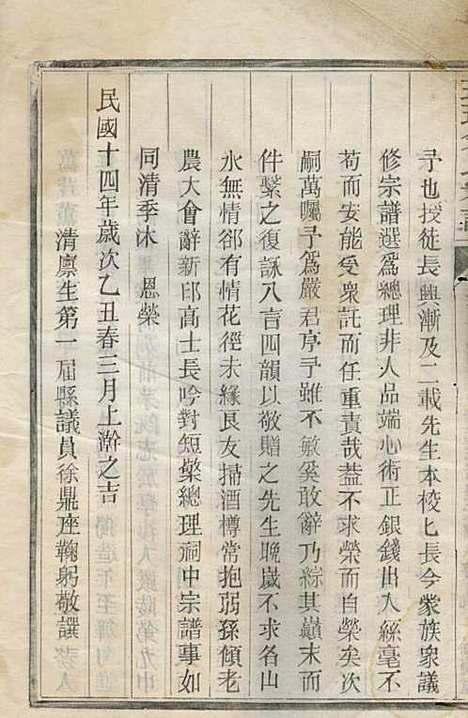 予也授徒長興漸及二載先生本校匕長今蒙族衆議
修宗譜選爲總理非人品端心術正銀錢出入絲毫不
苟而安能受衆託而任重責哉蓋不求榮而自榮矣次
嗣萬囑予爲嚴君序予雖不敏奚敢辭乃綜其巔末而
件繫之復詠八言四韻以敬贈之先生晚歲不求名山
水無情郤有情花徑未緣良友掃酒樽常抱弱孫傾老
農大會辭新邱高士長吟對短檠總理祠中宗譜事如
同清季沐　恩榮
民國十四年歲次乙丑春三月上澣之吉
清廩生第一屆縣議員徐鼎座鞠躬敬譔